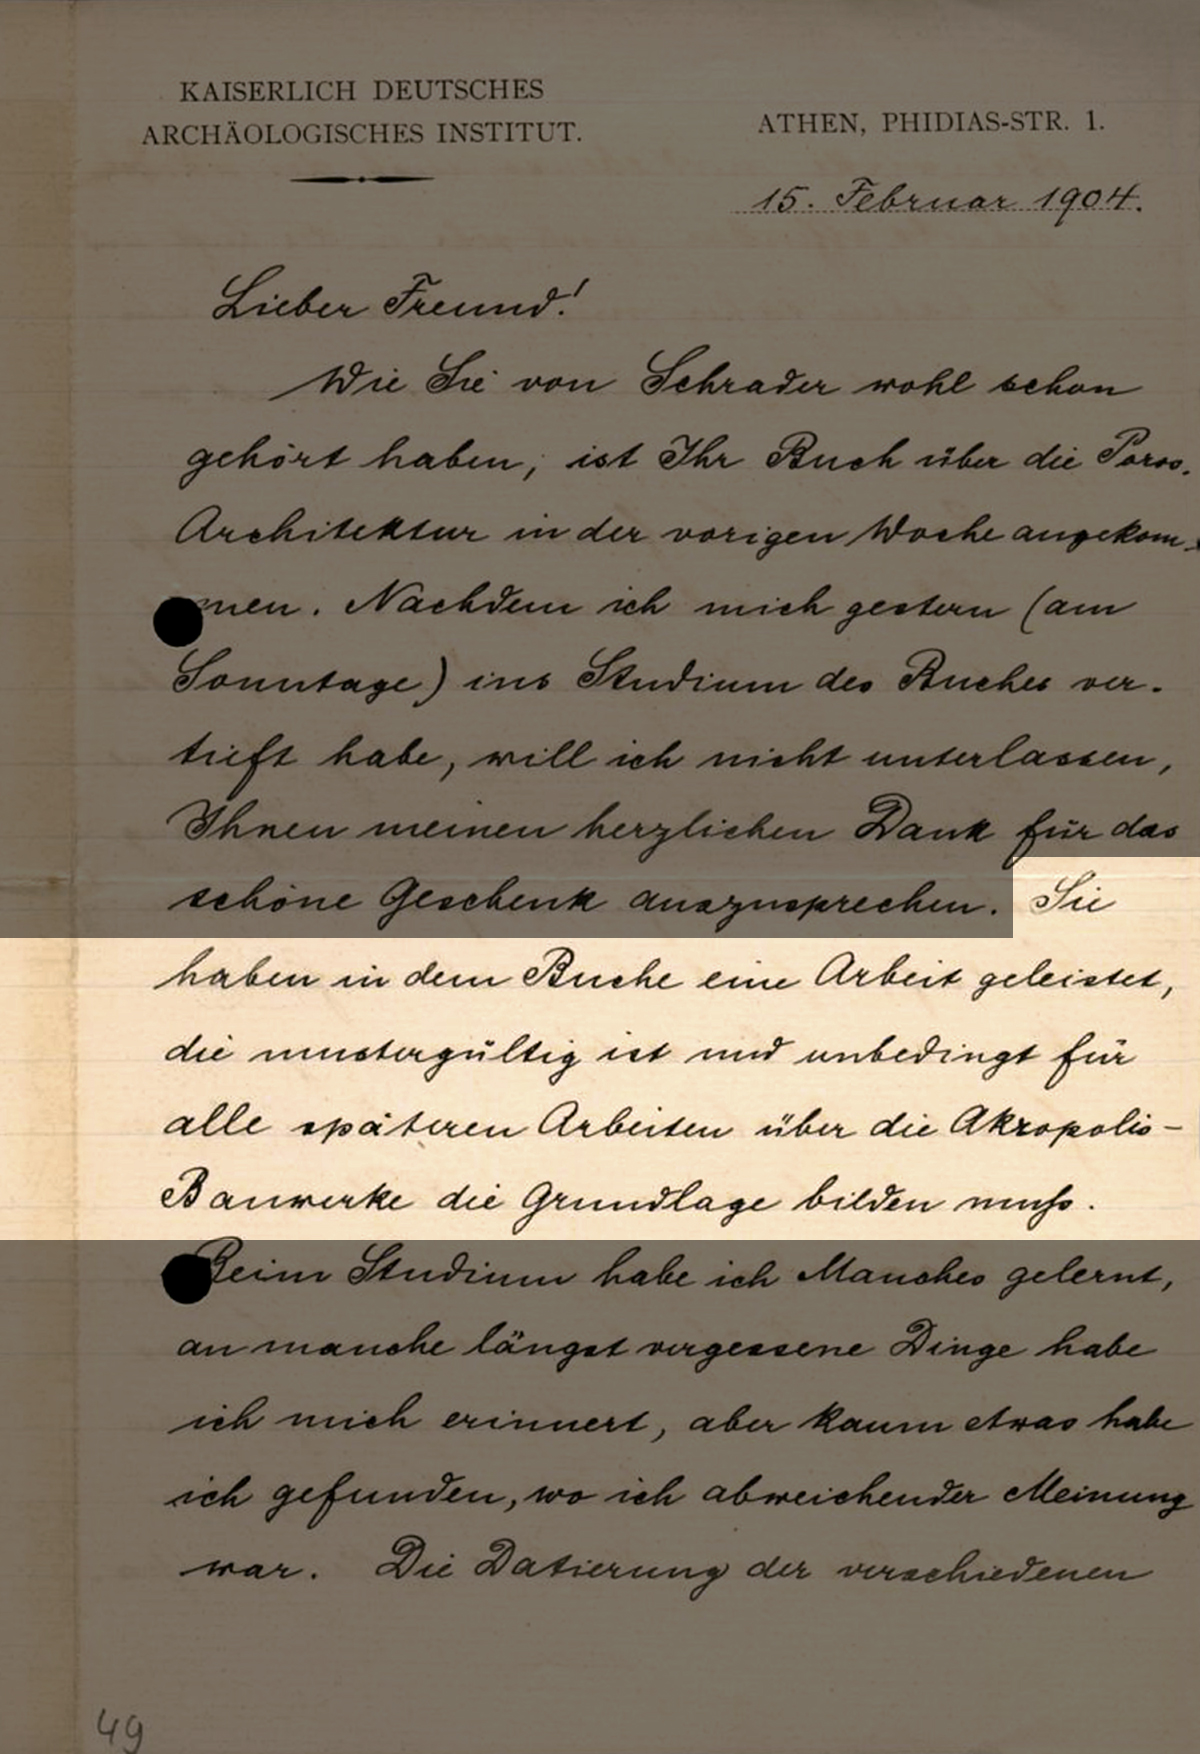 KAISERLICH DEUTSCHES
ARCHÄOLOGISCHES INSTITUT.
ATHEN, PHIDIAS-STR. 1.
15. Februar 1904.
Lieber Freund!
Wie Sie von Schrader wohl schon
gehört haben, ist Ihr Buch über die Poros-
Architektur in der vorigen Woche angekom-
men. Nachdem ich mich gestern (am
Sonntage) ins Studium des Buches ver-
tieft habe, will ich nicht unterlassen,
Ihnen meinen herzlichen Dank für das
schöne Geschenk auszusprechen. Sie
haben in dem Buche eine Arbeit geleistet,
die mustergültig ist und unbedingt für
alle späteren Arbeiten über die Akropolis-
Bauwerke die Grundlage bilden muß.
Beim Studium habe ich Manches gelernt,
an manche längst vergessene Dinge habe
ich mich erinnert, aber kaum etwas habe
ich gefunden, wo ich abweichender Meinung
war. Die Datierung der verschiedenen
49